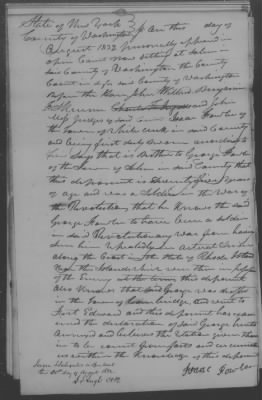 State of New York
County of Washington } ss On this day of
August 1832 personally appeared in
open Court now sitting at Salem in
said County of Washington, the County
Court in & for said County of Washington
Before the Hon John Willard Benjamin
F Skinner and John
McG Judges of said Court Isaac Fowler of
the Town of White Creek in said County
and being first duly Sworn according to
law Says that is Brother to George Fowler
of the Town of Salem in said County that
this deponent is Seventy five years
of age and was a Soldier in the War of
the Revolution, that he Knows the said
George Fowler to have been a soldier
in said Revolutionary war from having
Seen him repeatedly in actual Service
along the Coast in the State of Rhode Island
of the Enemy at the time, this deponent
also Knows that said George was drafted
in the Town of Cambridge, and went to
Fort Edward and this deponent has exam
ined the declaration of said George hereto
Annexed and believes the Statement given there
in to be correct from facts and circum
within the Knowledge of this deponent
Isaac Fowler
the day of August 1832
Clk